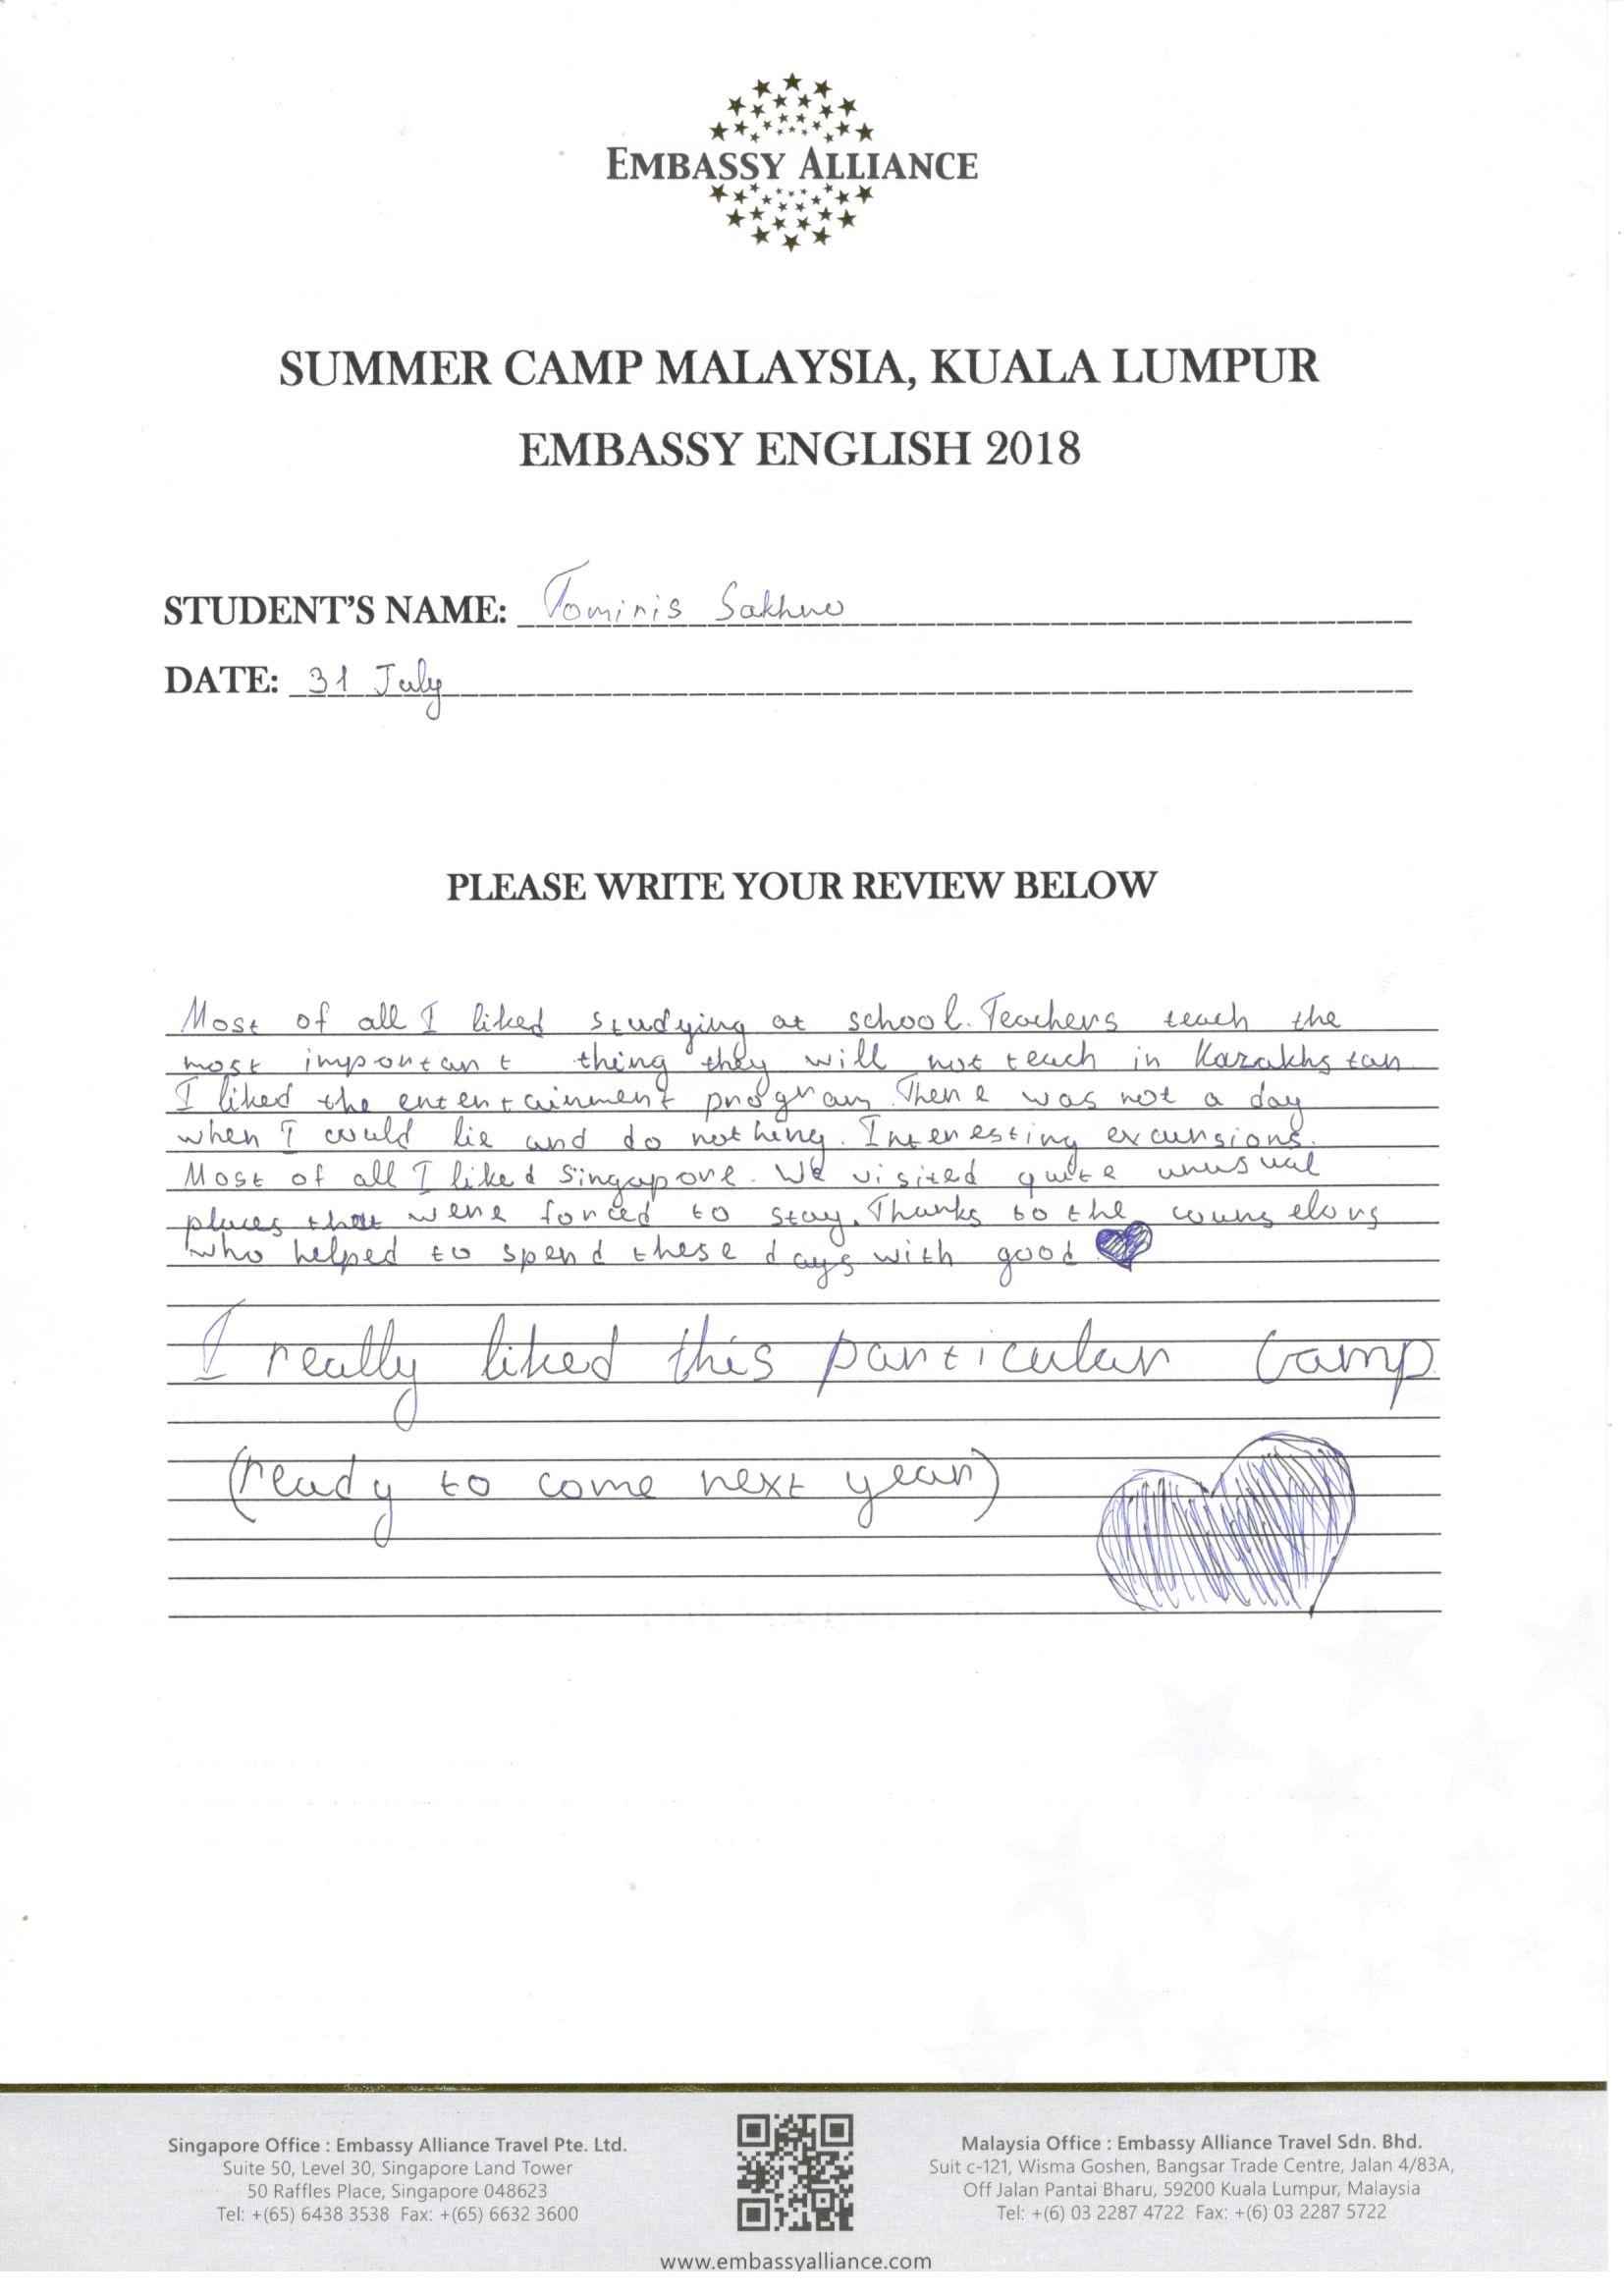 EMBASSY ALLIANCE
SUMMER CAMP MALAYSIA, KUALA LUMPUR
EMBASSY ENGLISH 2018
STUDENT'S NAME: Tominis Sakhno
DATE: 31 July
PLEASE WRITE YOUR REVIEW BELOW
Most of all I liked studying at school. Teachers teach the
most important thing they will not teach in Kazakhstan
I liked the entertainment program. There was not a day
when I could lie and do nothing. Interesting excursions.
Most of all I liked Singapore. We visited quite unusual
places that were forced to stay. Thanks to the counselors
who helped to spend these days with good
I really liked this particular camp
(ready to come next year)
Singapore Office : Embassy Alliance Travel Pte. Ltd.
Suite 50, Level 30, Singapore Land Tower
50 Raffles Place, Singapore 048623
Tel: +(65) 6438 3538 Fax: +(65) 6632 3600
Malaysia Office : Embassy Alliance Travel Sdn. Bhd.
Suit c-121, Wisma Goshen, Bangsar Trade Centre, Jalan 4/83A,
Off Jalan Pantai Bharu, 59200 Kuala Lumpur, Malaysia
Tel: +(6) 03 2287 4722 Fax: +(6) 03 2287 5722
www.embassyalliance.com